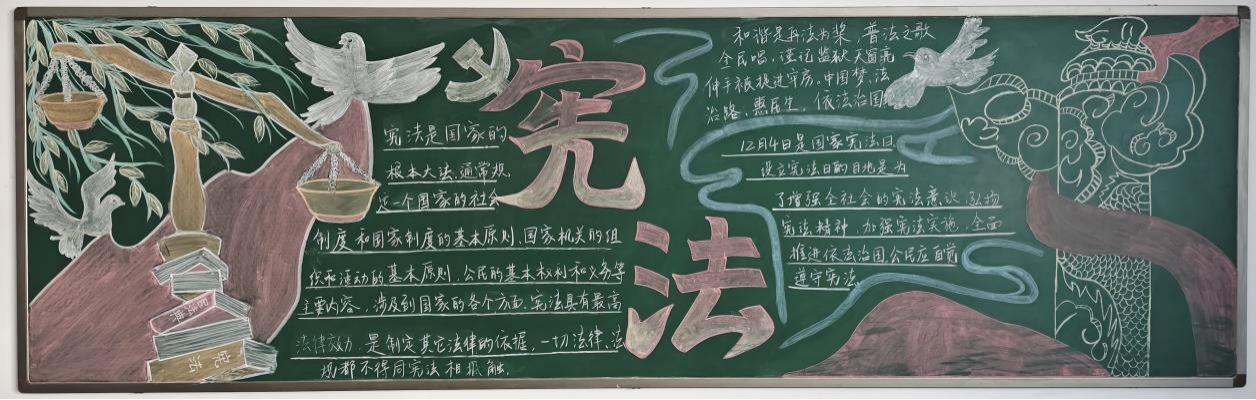 宪法
宪法是国家的
根本大法,通常规
定一个国家的社会
制度和国家制度的基本原则、国家机关的组
织和活动的基本原则,公民的基本权利和义务等
主要内容,涉及到国家的各个方面.宪法具有最高
法律效力,是制定其它法律的依据,一切法律、法
规都不得同宪法相抵触.
和谐是舟法为桨,普法之歌
全民唱,谨记监狱天窗亮
伸手被捉进牢房。中国梦,法
治路,惠民生,依法治国
12月4日是国家宪法日
设立宪法日的目地是为
了增强全社会的宪法意识,弘扬
宪法精神,加强宪法实施,全面
推进依法治国,公民应自觉
遵守宪法
民法典
宪法